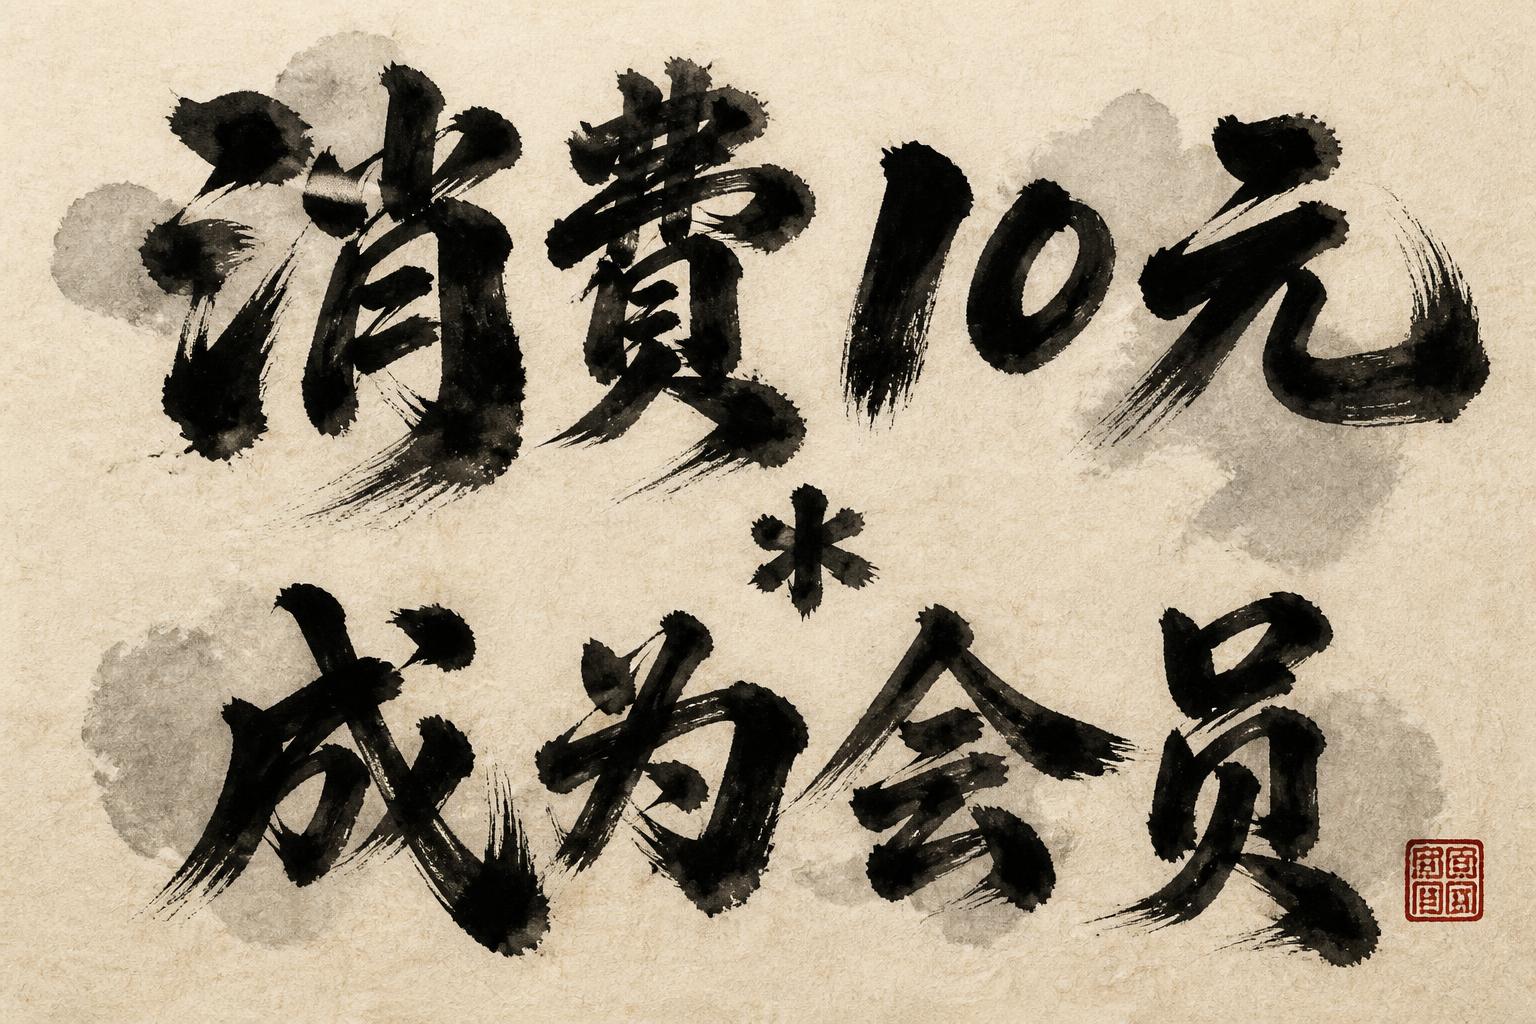 消費10元
*
成为会员